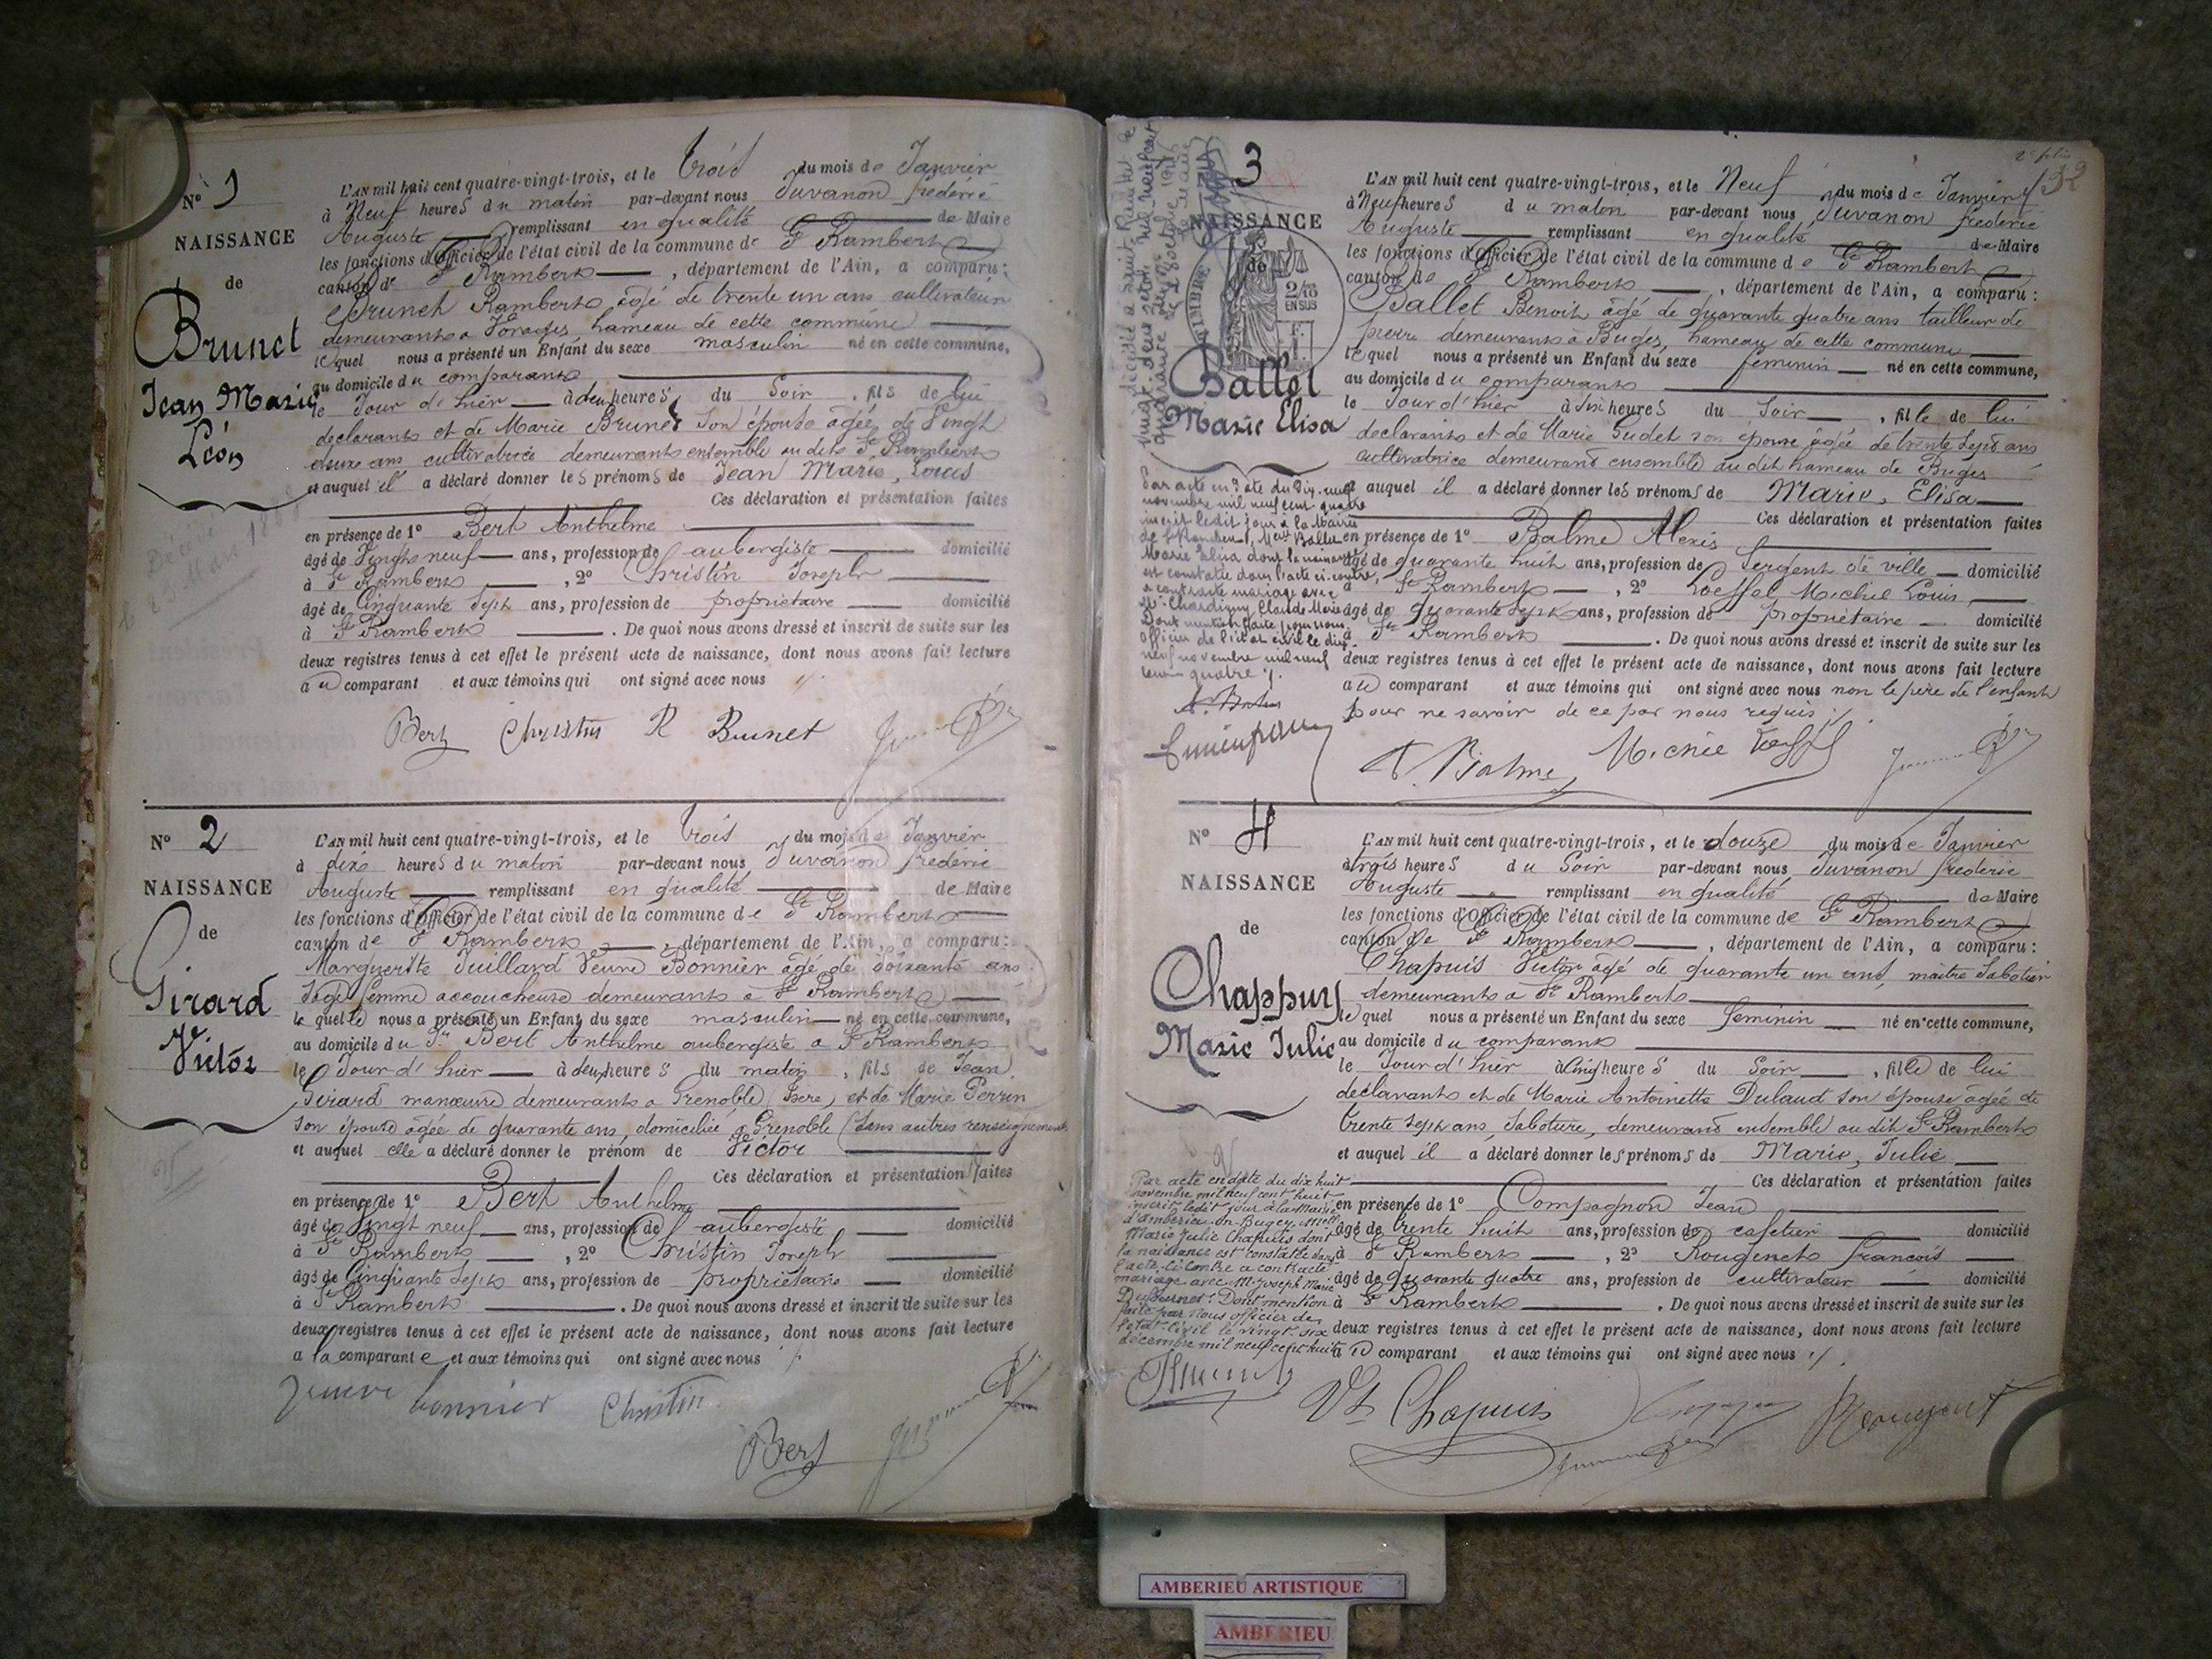 Nº 1
NAISSANCE
de
Brunet
Jean Marie
Léon
L'AN mil huit cent quatre-vingt-trois, et le trois du mois de Janvier
à Neuf heures du matin par-devant nous Juvanon frederic
Auguste remplissant en qualité de Maire
les fonctions d'Officier de l'état civil de la commune de St Rambert
canton de St Rambert, département de l'Ain, a comparu:
Brunet Rambert, âgé de trente un ans cultivateur
demeurant à hameau de cette commune
lequel nous a présenté un Enfant du sexe masculin né en cette commune,
au domicile du comparant
le Jour d'hier à deux heures du Soir, fils de lui
declarant et de Marie Brunet son épouse âgée de Vingt
deux ans cultivatrice demeurant ensemble au dit St Rambert
et auquel il a déclaré donner les prénoms de Jean Marie, Louis
Ces déclaration et présentation faites
en présence de 1º Bert Anthelme
âgé de Vingt neuf ans, profession de aubergiste domicilié
à St Rambert, 2º Christin Joseph
âgé de Cinquante Sept ans, profession de propriétaire domicilié
à St Rambert. De quoi nous avons dressé et inscrit de suite sur les
deux registres tenus à cet effet le présent acte de naissance, dont nous avons fait lecture
au comparant et aux témoins qui ont signé avec nous
Bert Christin R Brunet
Nº 2
NAISSANCE
de
Girard
Victor
L'AN mil huit cent quatre-vingt-trois, et le trois du mois de Janvier
à dix heures du matin par-devant nous Juvanon frederic
Auguste remplissant en qualité de Maire
les fonctions d'Officier de l'état civil de la commune de St Rambert
canton de St Rambert, département de l'Ain, a comparu:
Marguerite Juillard Veuve Bonnier âgé de Soixante ans
Sage femme accoucheuse demeurant à St Rambert
lequelle nous a présenté un Enfant du sexe masculin né en cette commune,
au domicile du Sr Bert Anthelme aubergiste a St Rambert
le Jour d'hier à deux heures du matin, fils de Jean
Girard manœuvre demeurant a Grenoble (Isere) et de Marie Perrin
son épouse âgée de quarante ans, domiciliée a Grenoble (Sans autres renseignements
et auquel elle a déclaré donner le prénom de Victor
Ces déclaration et présentation faites
en présence de 1º Bert Anthelme
âgé de Vingt neuf ans, profession de aubergiste domicilié
à St Rambert, 2º Christin Joseph
âgé de Cinquante Sept ans, profession de propriétaire domicilié
à St Rambert. De quoi nous avons dressé et inscrit de suite sur les
deux registres tenus à cet effet le présent acte de naissance, dont nous avons fait lecture
a la comparante et aux témoins qui ont signé avec nous
bonnier Christin
Bert
3
NAISSANCE
de
Ballet
Marie Elisa
L'AN mil huit cent quatre-vingt-trois, et le Neuf du mois de Janvier
à Neuf heures du matin par-devant nous Juvanon frederic
Auguste remplissant en qualité de Maire
les fonctions d'Officier de l'état civil de la commune de St Rambert
canton de St Rambert, département de l'Ain, a comparu:
Ballet Benoit âgé de quarante quatre ans tailleur de
pierre demeurant à Buges, hameau de cette commune
lequel nous a présenté un Enfant du sexe feminin né en cette commune,
au domicile du comparant
le Jour d'hier à Six heures du Soir, fille de lui
declarant et de Marie Gudet son épouse âgée de trente sept ans
cultivatrice demeurant ensemble au dit hameau de Buges
et auquel il a déclaré donner les prénoms de Marie, Elisa
Ces déclaration et présentation faites
en présence de 1º Balme Alexis
âgé de quarante huit ans, profession de Sergent de ville domicilié
à St Rambert, 2º Loeffel Michel Louis
âgé de quarante Sept ans, profession de propriétaire domicilié
à St Rambert. De quoi nous avons dressé et inscrit de suite sur les
deux registres tenus à cet effet le présent acte de naissance, dont nous avons fait lecture
au comparant et aux témoins qui ont signé avec nous non le père de l'enfant
pour ne savoir de ce par nous requis
A. Balme
Par acte en date du Dix-neuf
novembre mil neuf cent quatre
inscrit ledit jour à la Mairie
de St Rambert, Melle Ballet
Marie Elisa dont la naissance
est constatée dans l'acte ci-contre,
a contracté mariage avec
Mr Chardigny Claude Marie
Dont mention faite par nous
officier de l'état civil le dix
neuf novembre mil neuf
cent quatre
Nº 4
NAISSANCE
de
Chappuy
Marie Julie
L'AN mil huit cent quatre-vingt-trois, et le douze du mois de Janvier
à trois heures du Soir par-devant nous Juvanon frederic
Auguste remplissant en qualité de Maire
les fonctions d'Officier de l'état civil de la commune de St Rambert
canton de St Rambert, département de l'Ain, a comparu:
Chapuis Victor âgé de quarante un ans, maitre Sabotier
demeurant à St Rambert
lequel nous a présenté un Enfant du sexe feminin né en cette commune,
au domicile du comparant
le Jour d'hier à Cinq heures du Soir, fille de lui
déclarant et de Marie Antoinette Dulaud son épouse âgée de
trente sept ans, Sabotière, demeurant ensemble au dit St Rambert
et auquel il a déclaré donner les prénoms de Marie, Julie
Ces déclaration et présentation faites
en présence de 1º Compagnon Jean
âgé de trente huit ans, profession de cafetier domicilié
à St Rambert, 2º Rougenet francois
âgé de quarante quatre ans, profession de cultivateur domicilié
à St Rambert. De quoi nous avons dressé et inscrit de suite sur les
deux registres tenus à cet effet le présent acte de naissance, dont nous avons fait lecture
au comparant et aux témoins qui ont signé avec nous
Par acte en date du dix huit
novembre mil neuf cent huit
inscrit ledit jour à la Mairie
d'Ambérieu-en-Bugey Melle
Marie Julie Chapuis dont
la naissance est constatée dans
l'acte ci-contre a contracté
mariage avec M. Joseph Marie
Dont mention
faite par Nous officier de
l'état civil le vingt six
décembre mil neuf cent huit
Vt Chapuis
AMBERIEU ARTISTIQUE
AMBERIEU